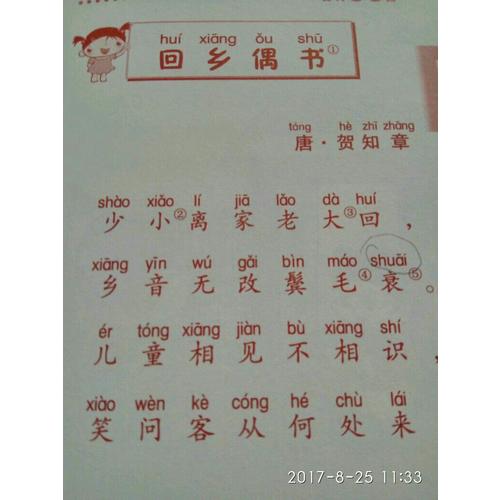 huí xiāng ǒu shū
回乡偶书①
táng hè zhī zhāng
唐·贺知章
shào xiǎo lí jiā lǎo dà huí
少小②离家老大③回，
xiāng yīn wú gǎi bìn máo shuāi
乡音无改鬓毛④衰⑤。
ér tóng xiāng jiàn bù xiāng shí
儿童相见不相识，
xiào wèn kè cóng hé chù lái
笑问客从何处来
2017-8-25 11:33